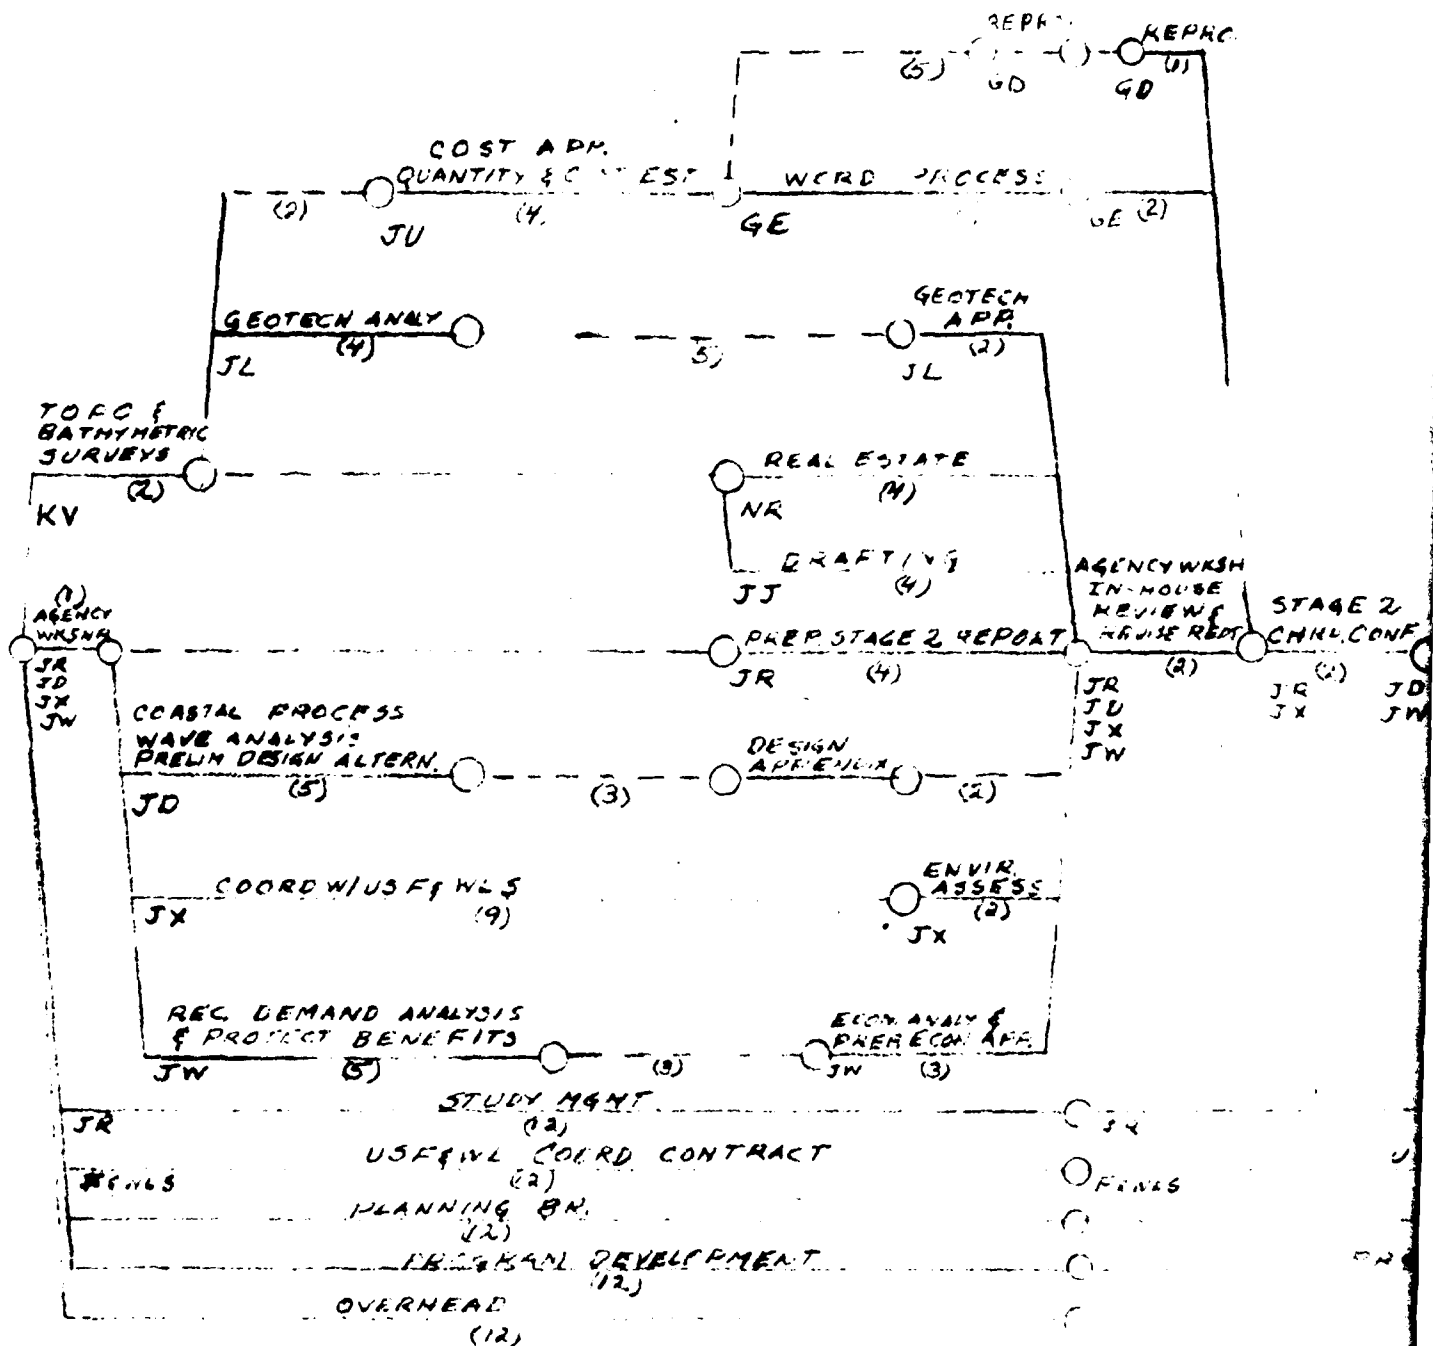 REPRO.
(5)
GD
GD
(1)
COST APP.
QUANTITY & C EST
(2)
JU
(4)
GE
WORD PROCESS
GE (2)
GEOTECH ANALY
(4)
JL
5)
GEOTECH
APP.
(2)
JL
TOPO &
BATHYMETRIC
SURVEYS
(2)
KV
REAL ESTATE
(4)
NR
DRAFTING
(4)
JJ
(1)
AGENCY
WKSHP
JR
JD
JX
JW
PREP. STAGE 2 REPORT
JR
(4)
AGENCY WKSH
IN-HOUSE
REVIEW &
REVISE REPT
(2)
JR
JD
JX
JW
STAGE 2
CHKL. CONF
(2)
JR
JX
JD
JW
COASTAL PROCESS
WAVE ANALYSIS
PRELIM DESIGN ALTERN.
(5)
JD
(3)
DESIGN
APPENDIX
(2)
COORD W/USF& WLS
(9)
JX
ENVIR.
ASSESS
(2)
JX
REC. DEMAND ANALYSIS
& PROJECT BENEFITS
JW
(5)
(3)
ECON. ANALY &
PREP. ECON APP.
JW
(3)
STUDY MGMT
JR
(12)
JR
USF&WL COORD CONTRACT
(12)
F&WLS
PLANNING BR.
(12)
PROGRAM DEVELOPMENT
(12)
OVERHEAD
(12)